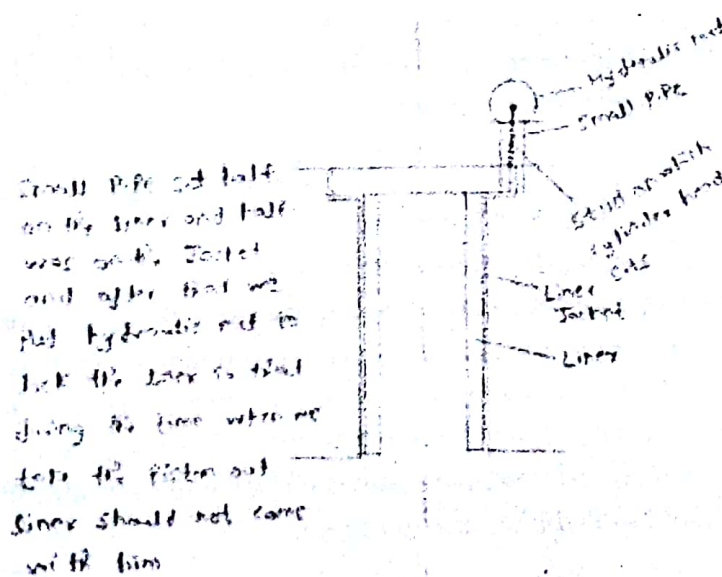 Small pipe sit half
on the liner and half
was on the Jacket
and after that we
put hydraulic nut to
lock the liner so that
during the time when we
take the piston out
liner should not come
with him
Hydraulic nut
Small pipe
Stud on which
cylinder head
sits
Liner
Jacket
Liner